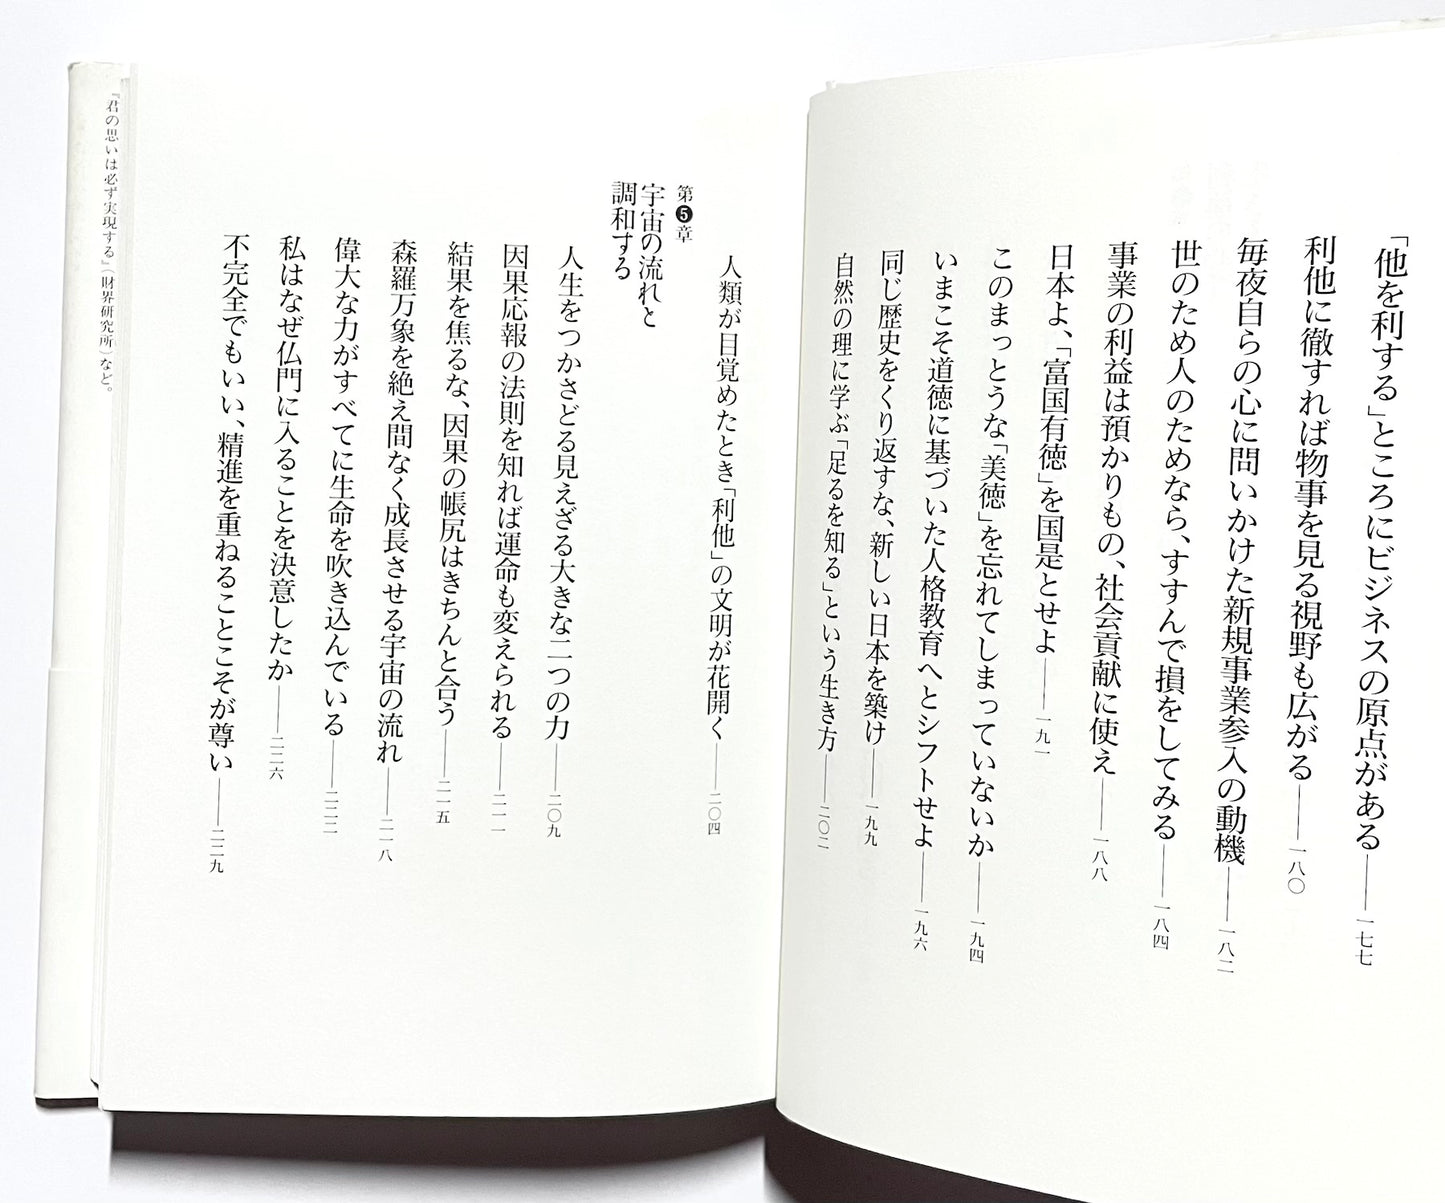 「他を利する」ところにビジネスの原点がある――一七七
利他に徹すれば物事を見る視野も広がる――一八〇
毎夜自らの心に問いかけた新規事業参入の動機――一八二
世のため人のためなら、すすんで損をしてみる――一八四
事業の利益は預かりもの、社会貢献に使え――一八八
日本よ、「富国有徳」を国是とせよ――一九一
このまっとうな「美徳」を忘れてしまっていないか――一九四
いまこそ道徳に基づいた人格教育へとシフトせよ――一九六
同じ歴史をくり返すな、新しい日本を築け――一九九
自然の理に学ぶ「足るを知る」という生き方――二〇二
人類が目覚めたとき「利他」の文明が花開く――二〇四
第5章
宇宙の流れと
調和する
人生をつかさどる見えざる大きな二つの力――二〇九
因果応報の法則を知れば運命も変えられる――二一一
結果を焦るな、因果の帳尻はきちんと合う――二一五
森羅万象を絶え間なく成長させる宇宙の流れ――二一八
偉大な力がすべてに生命を吹き込んでいる――二二二
私はなぜ仏門に入ることを決意したか――二二六
不完全でもいい、精進を重ねることこそが尊い――二二九
『君の思いは必ず実現する』(財界研究所)など。